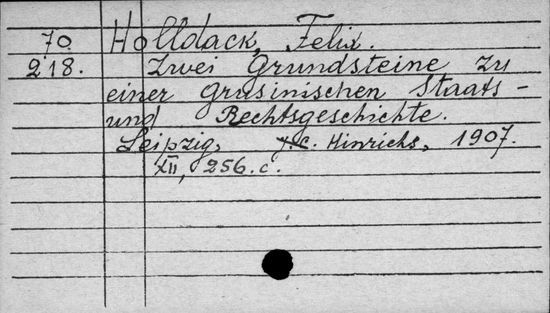 70 Holldack, Felix.
218. Zwei Grundsteine zu
einer grusinischen Staats-
und Rechtsgeschichte.
Leipzig, J.C. Hinrichs, 1907.
XII, 256.c.